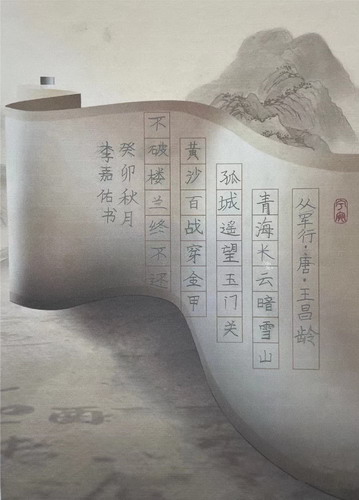 从军行·唐·王昌龄
青海长云暗雪山
孤城遥望玉门关
黄沙百战穿金甲
不破楼兰终不还
癸卯秋月
李嘉佑书